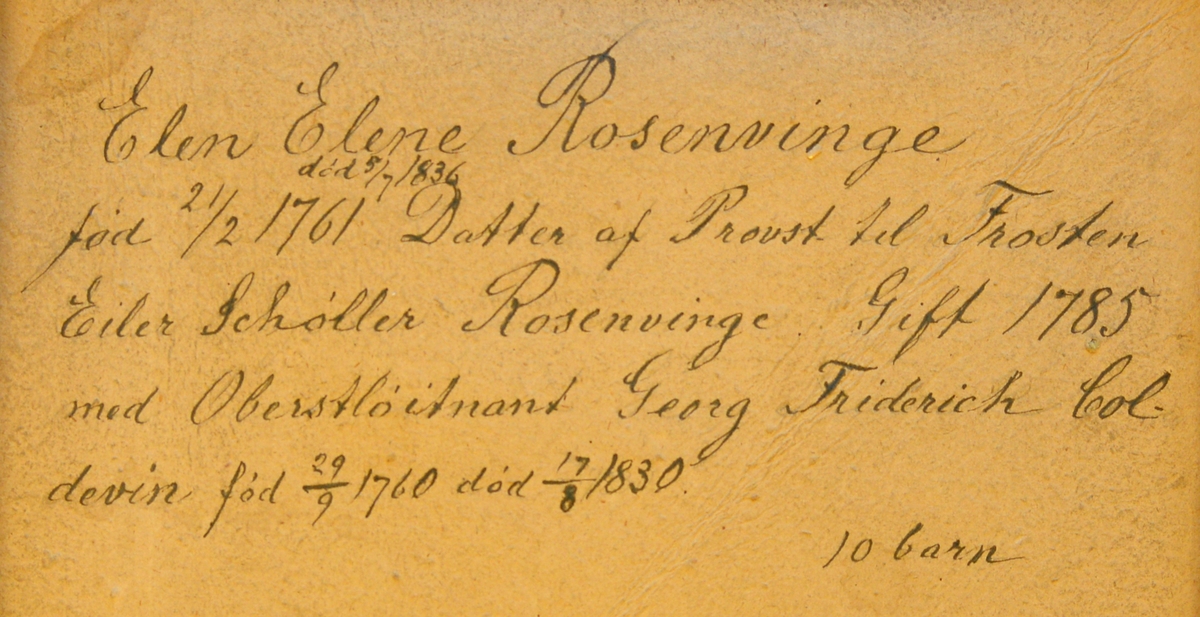 Elen Elene Rosenvinge
død 5/7 1836
fød 21/2 1761 Datter af Provst til Frosten
Eiler Schøller Rosenvinge. Gift 1785
med Oberstløitnant Georg Friderich Col-
devin fød 29/9 1760 død 17/8 1830.
10 barn